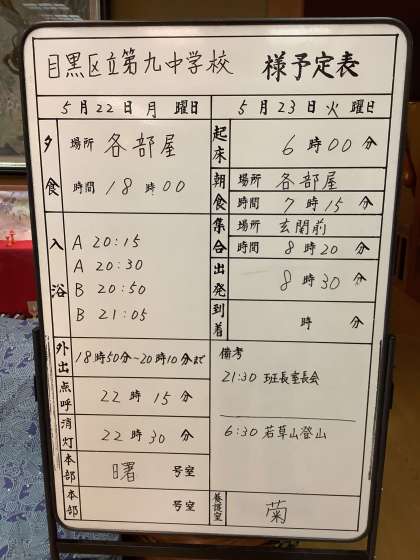 目黒区立第九中学校 様予定表
5月22日月曜日
夕食
場所 各部屋
時間 18時00
入浴
A 20:15
A 20:30
B 20:50
B 21:05
外出 18時50分~20時10分まで
点呼 22時15分
消灯 22時30分
本部 曙 号室
本部 号室
5月23日火曜日
起床 6時00分
朝食
場所 各部屋
時間 7時15分
集合
場所 玄関前
時間 8時20分
出発 8時30分
到着 時 分
備考
21:30 班長室長会
6:30 若草山登山
養護室 菊